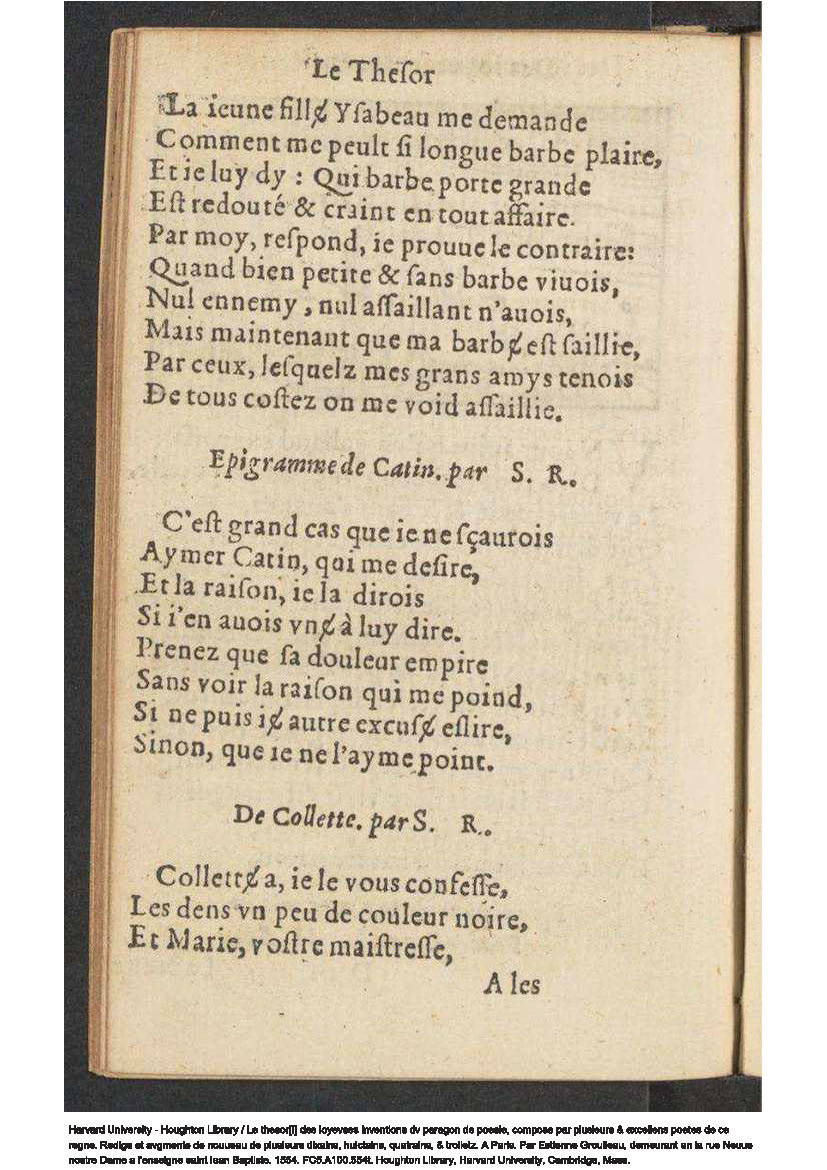 Le Theſor
La ieune fillɇ Yſabeau me demande
Comment me peult ſi longue barbe plaire,
Et ie luy dy : Qui barbe porte grande
Eſt redouté & craint en tout affaire.
Par moy, reſpond, ie prouue le contraire:
Quand bien petite & ſans barbe viuois,
Nul ennemy, nul aſſaillant n'auois,
Mais maintenant que ma barbɇ eſt ſaillie,
Par ceux, leſquelz mes grans amys tenois
De tous coſtez on me void aſſaillie.
Epigramme de Catin. par S. R.
C'eſt grand cas que ie ne ſçaurois
Aymer Catin, qui me deſire,
Et la raiſon, ie la dirois
Si i'en auois vnɇ à luy dire.
Prenez que ſa douleur empire
Sans voir la raiſon qui me poind,
Si ne puis iɇ autre excuſɇ eſlire,
Sinon, que ie ne l'ayme point.
De Collette. par S. R.
Collettɇ a, ie le vous confeſſe,
Les dens vn peu de couleur noire,
Et Marie, voſtre maiſtreſſe,
A les
Harvard University - Houghton Library / Le thesor[i] des ioyevses inventions dv paragon de poesie, compose par plusieurs & excellens poetes de ce
regne. Redige et avgmente de nouueau de plusieurs dixains, huictains, quatrains, & trolletz. A Paris. Par Estienne Groulleau, demeurant en la rue Neuue
nostre Dame a l'enseigne saint Iean Baptiste. 1554. FC5.A100.554t. Houghton Library, Harvard University, Cambridge, Mass.